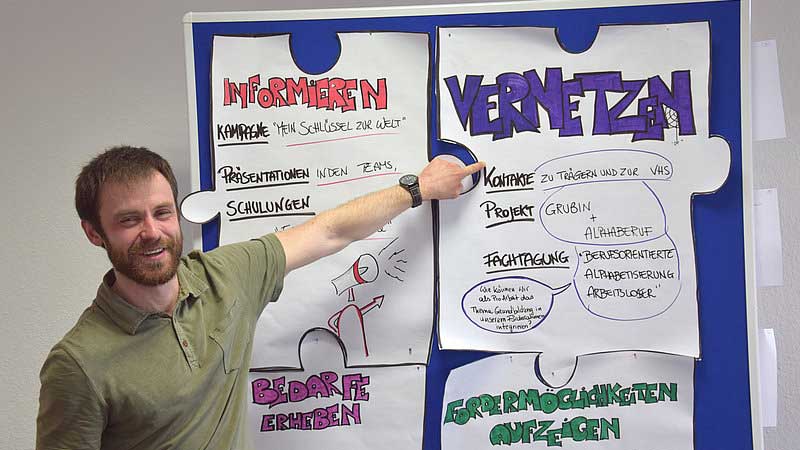 INFORMIEREN
KAMPAGNE "MEIN SCHLÜSSEL ZUR WELT"
PRÄSENTATIONEN IN DEN TEAMS,
SCHULUNGEN
BEDARFE
ERHEBEN
VERNETZEN
KONTAKTE ZU TRÄGERN UND ZUR VHS
PROJEKT GRUBIN
+
ALPHABERUF
FACHTAGUNG "BERUFSORIENTIERTE
ALPHABETISIERUNG
ARBEITSLOSER"
Wie können wir
als ProArbeit das
Thema Grundbildung in
unserem
integrieren?
FÖRDERMÖGLICHKEITEN
AUFZEIGEN